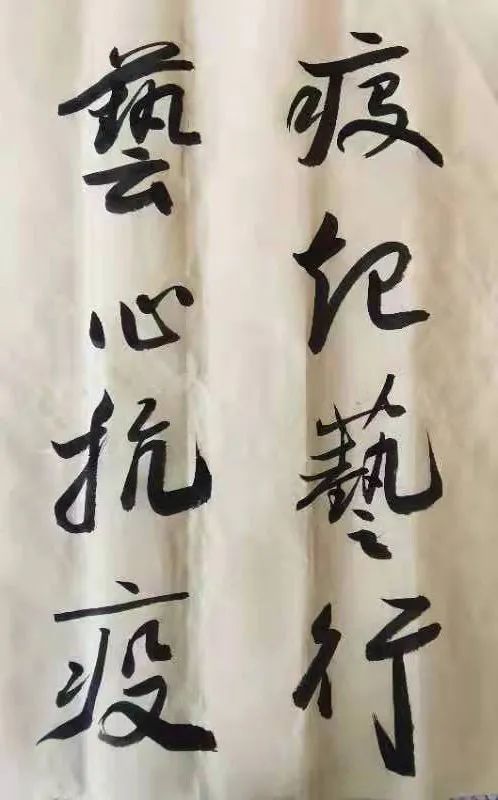 疫起藝行
藝心抗疫